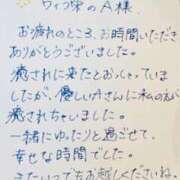 ワイフ栄のA様、
お疲れのところ、お時間いただき
ありがとうございました。
癒されに来たとおっしゃっていま
したが、優しいAさんに私のほう
癒されちゃいました。
一緒にゆったりと過ごせて、
幸せな時間でした。
またいつでもお越しくださいね。